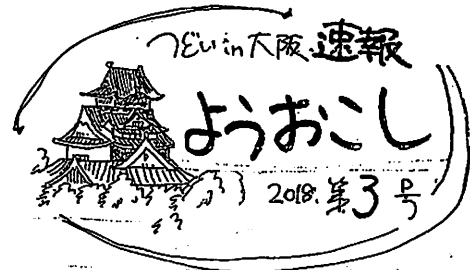 つどい in 大阪 速報
ようおこし
2018. 第3号